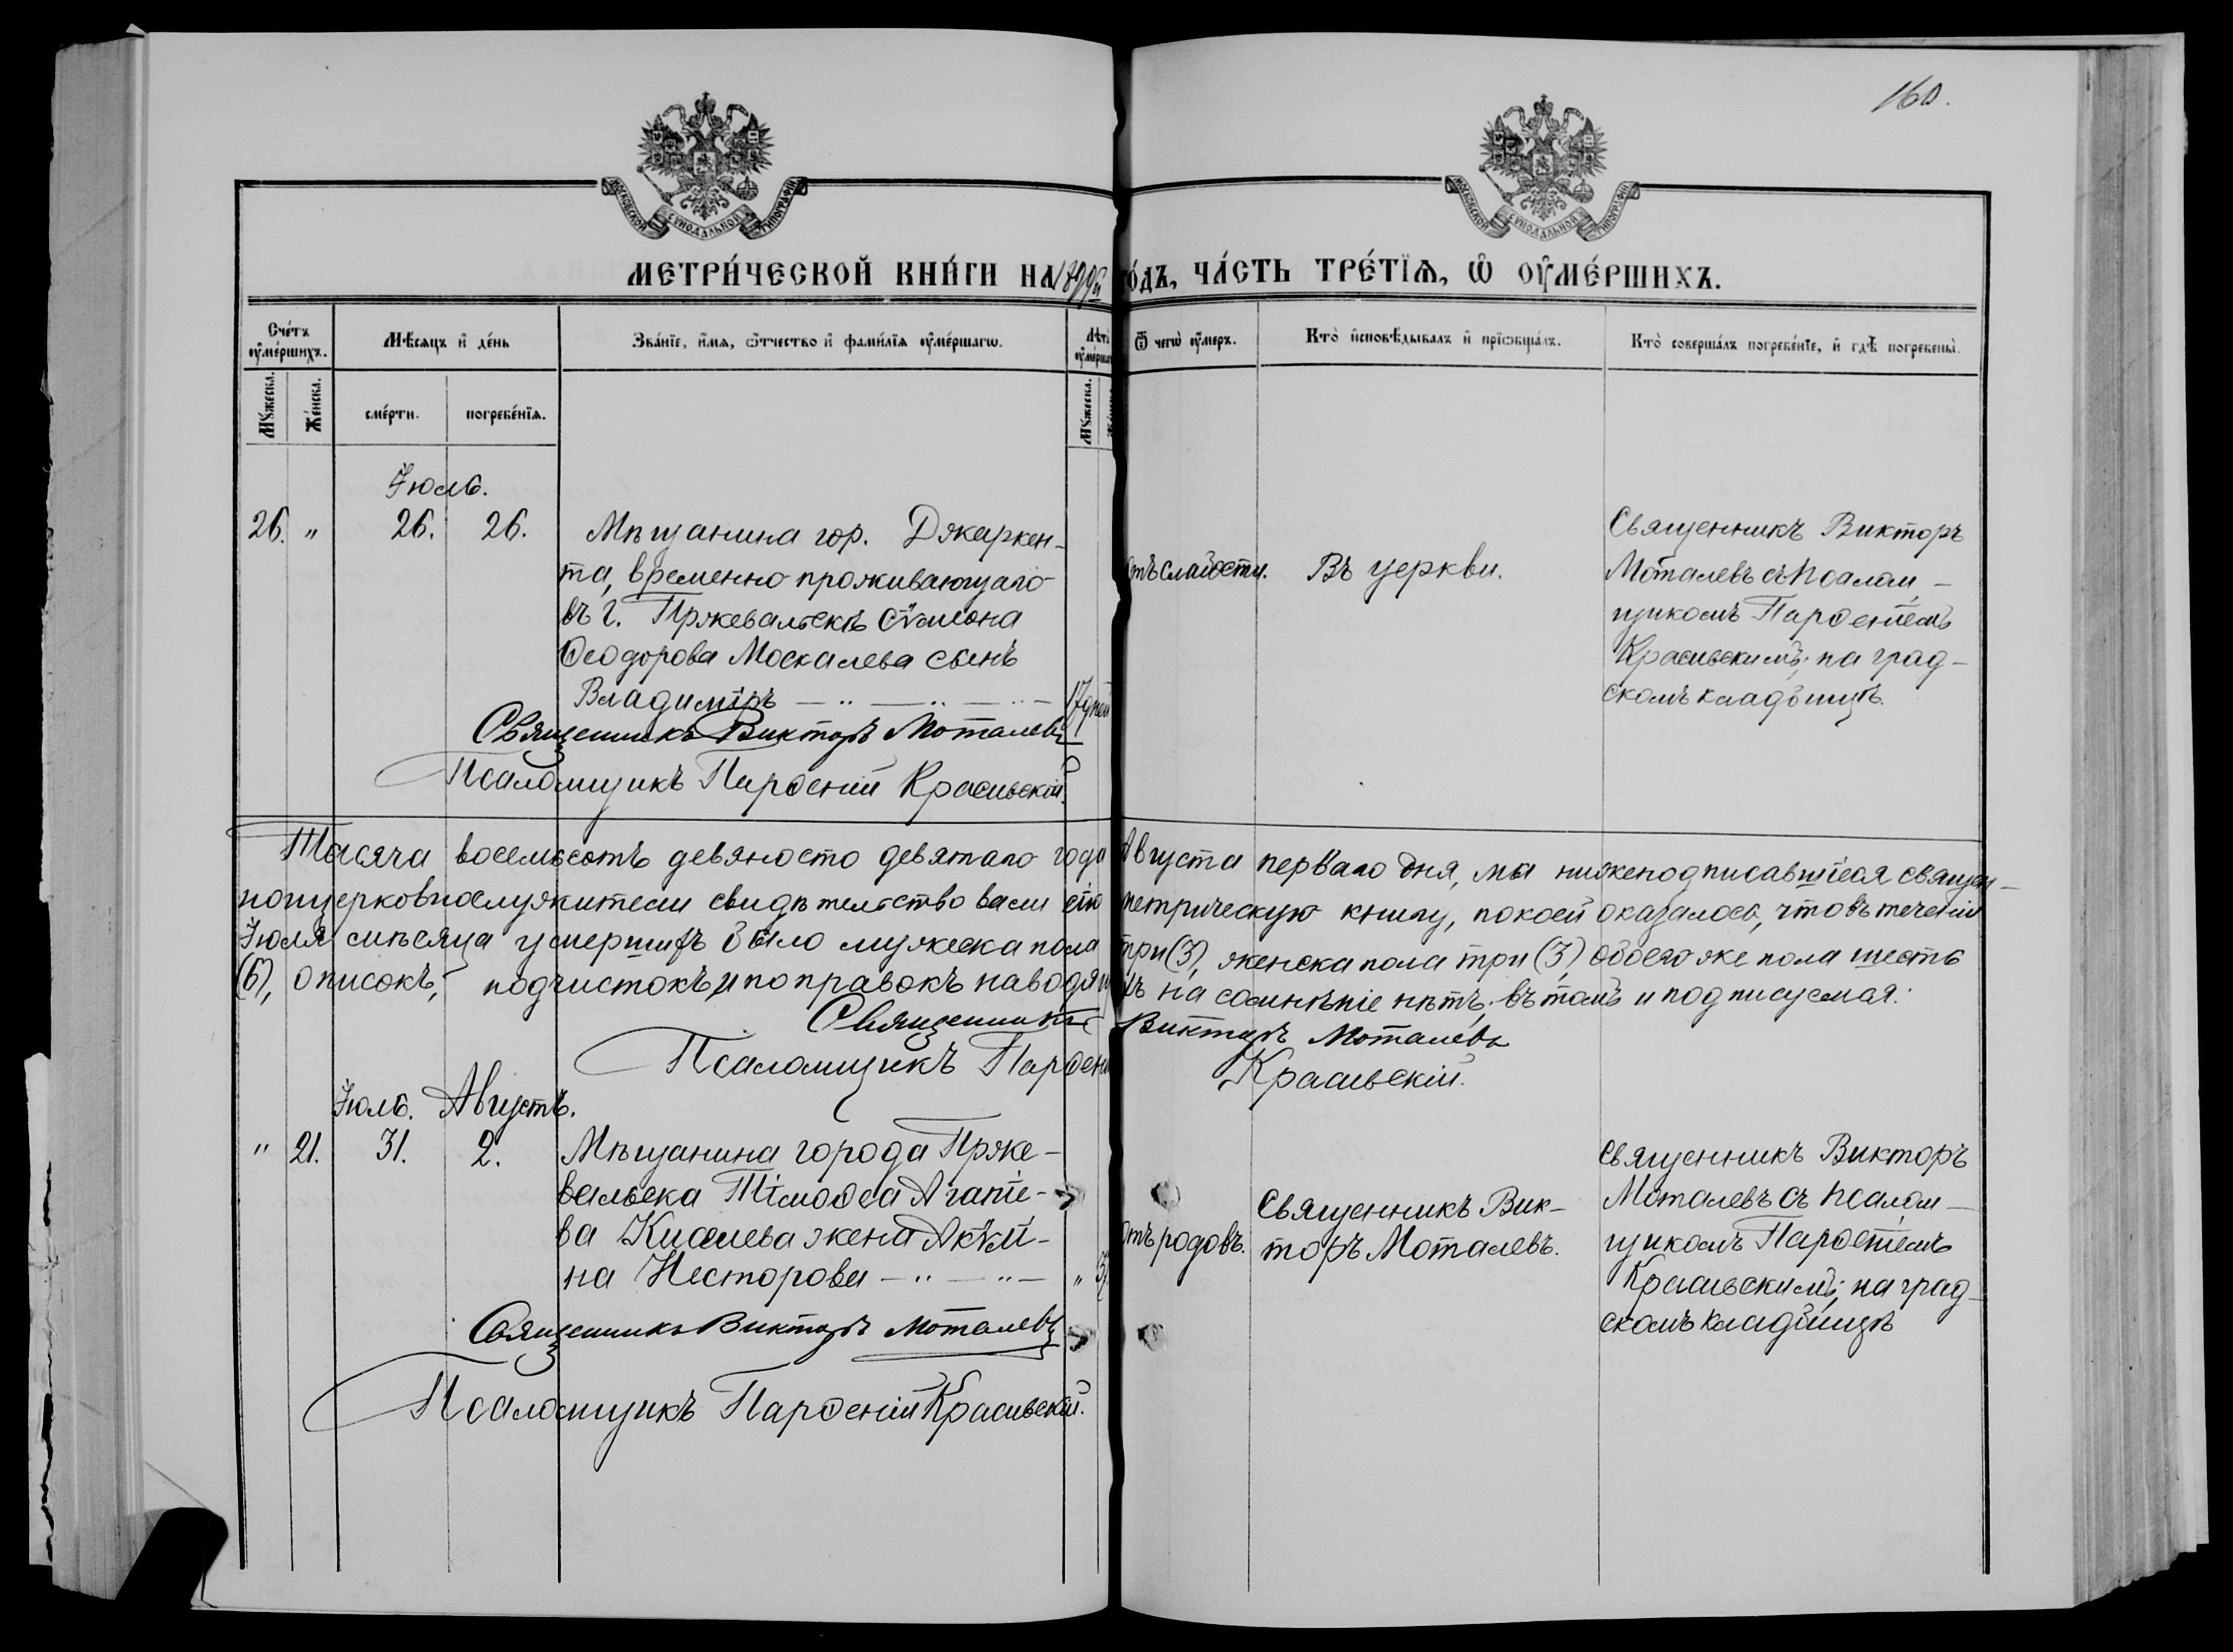 160.
МОСКОВСКОЙ СѴНОДАЛЬНОЙ ТИПОГРАФІИ
МОСКОВСКОЙ СѴНОДАЛЬНОЙ ТИПОГРАФІИ
МЕТРИ́ЧЕСКОЙ КНИ́ГИ НА 1899й ГО́ДЪ, ЧА́СТЬ ТРЕ́ТІѦ, Ѡ ОУМЕ́РШИХЪ.
Сче́тъ оумершихъ.
Мѣ́сяцъ и де́нь
Зва́ніе, и́мя, ѻтчество и фами́лія оуме́ршагѡ.
Ѿ чегѡ̀ оумеръ.
Кто̀ исповѣ́дывалъ и пріѡбща́лъ.
Кто̀ соверша́лъ погребе́ніе, и гдѣ̀ погребены̀.
Мꙋ́жеска.
Же́нска.
сме́рти.
погребе́нія.
Мꙋ́жеска.
Іюль.
26. " 26. 26.
Мѣщанина гор. Джаркен-
та, временно проживающаго
въ г. Пржевальскѣ Сѵмеона
Ѳеодорова Москалева сынъ
Владиміръ — " — " — " —
17 дней
отъ слабости.
Въ церкви.
Священникъ Викторъ
Моталевъ съ псалом-
щикомъ Парѳеніемъ
Красивскимъ; на град-
скомъ кладбищѣ.
Священникъ Викторъ Моталевъ
Псаломщикъ Парѳеній Красивскій.
Тысяча восемьсотъ девяносто девятаго года Августа перваго дня, мы нижеподписавшіеся священ-
ноцерковнослужители свидѣтельствовали сію метрическую книгу, по коей оказалось, что въ теченіи
Іюля мѣсяца умершихъ было мужеска пола три (3), женска пола три (3), обоего же пола шесть
(6), описокъ, подчистокъ и поправокъ наводящихъ на сомнѣніе нѣтъ; въ томъ и подписуемся:
Священникъ Викторъ Моталевъ
Псаломщикъ Парѳеній Красивскій.
Іюль. Августъ.
" 21. 31. 2.
Мѣщанина города Прже-
вальска Тімоѳеа Агапіе-
ва Киселева жена Акѵли-
на Несторова — " — " —
"
отъ родовъ.
Священникъ Вик-
торъ Моталевъ.
Священникъ Викторъ
Моталевъ съ псалом-
щикомъ Парѳеніемъ
Красивскимъ; на град-
скомъ кладбищѣ
Священникъ Викторъ Моталевъ
Псаломщикъ Парѳеній Красивскій.